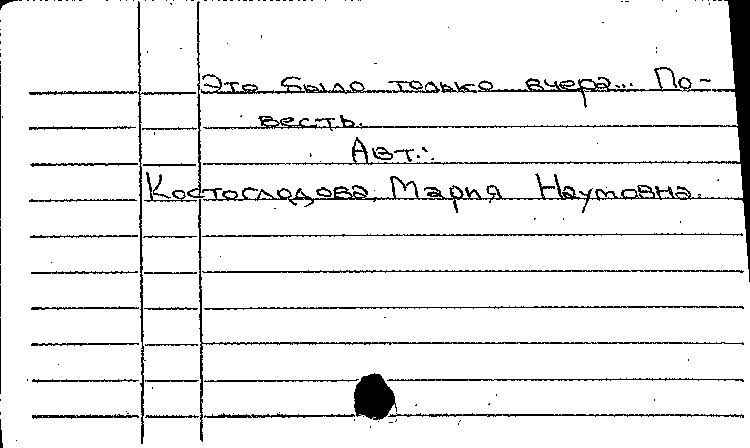 Это было только вчера... По-
весть.
Авт.:
Костоглодова, Мария Наумовна.